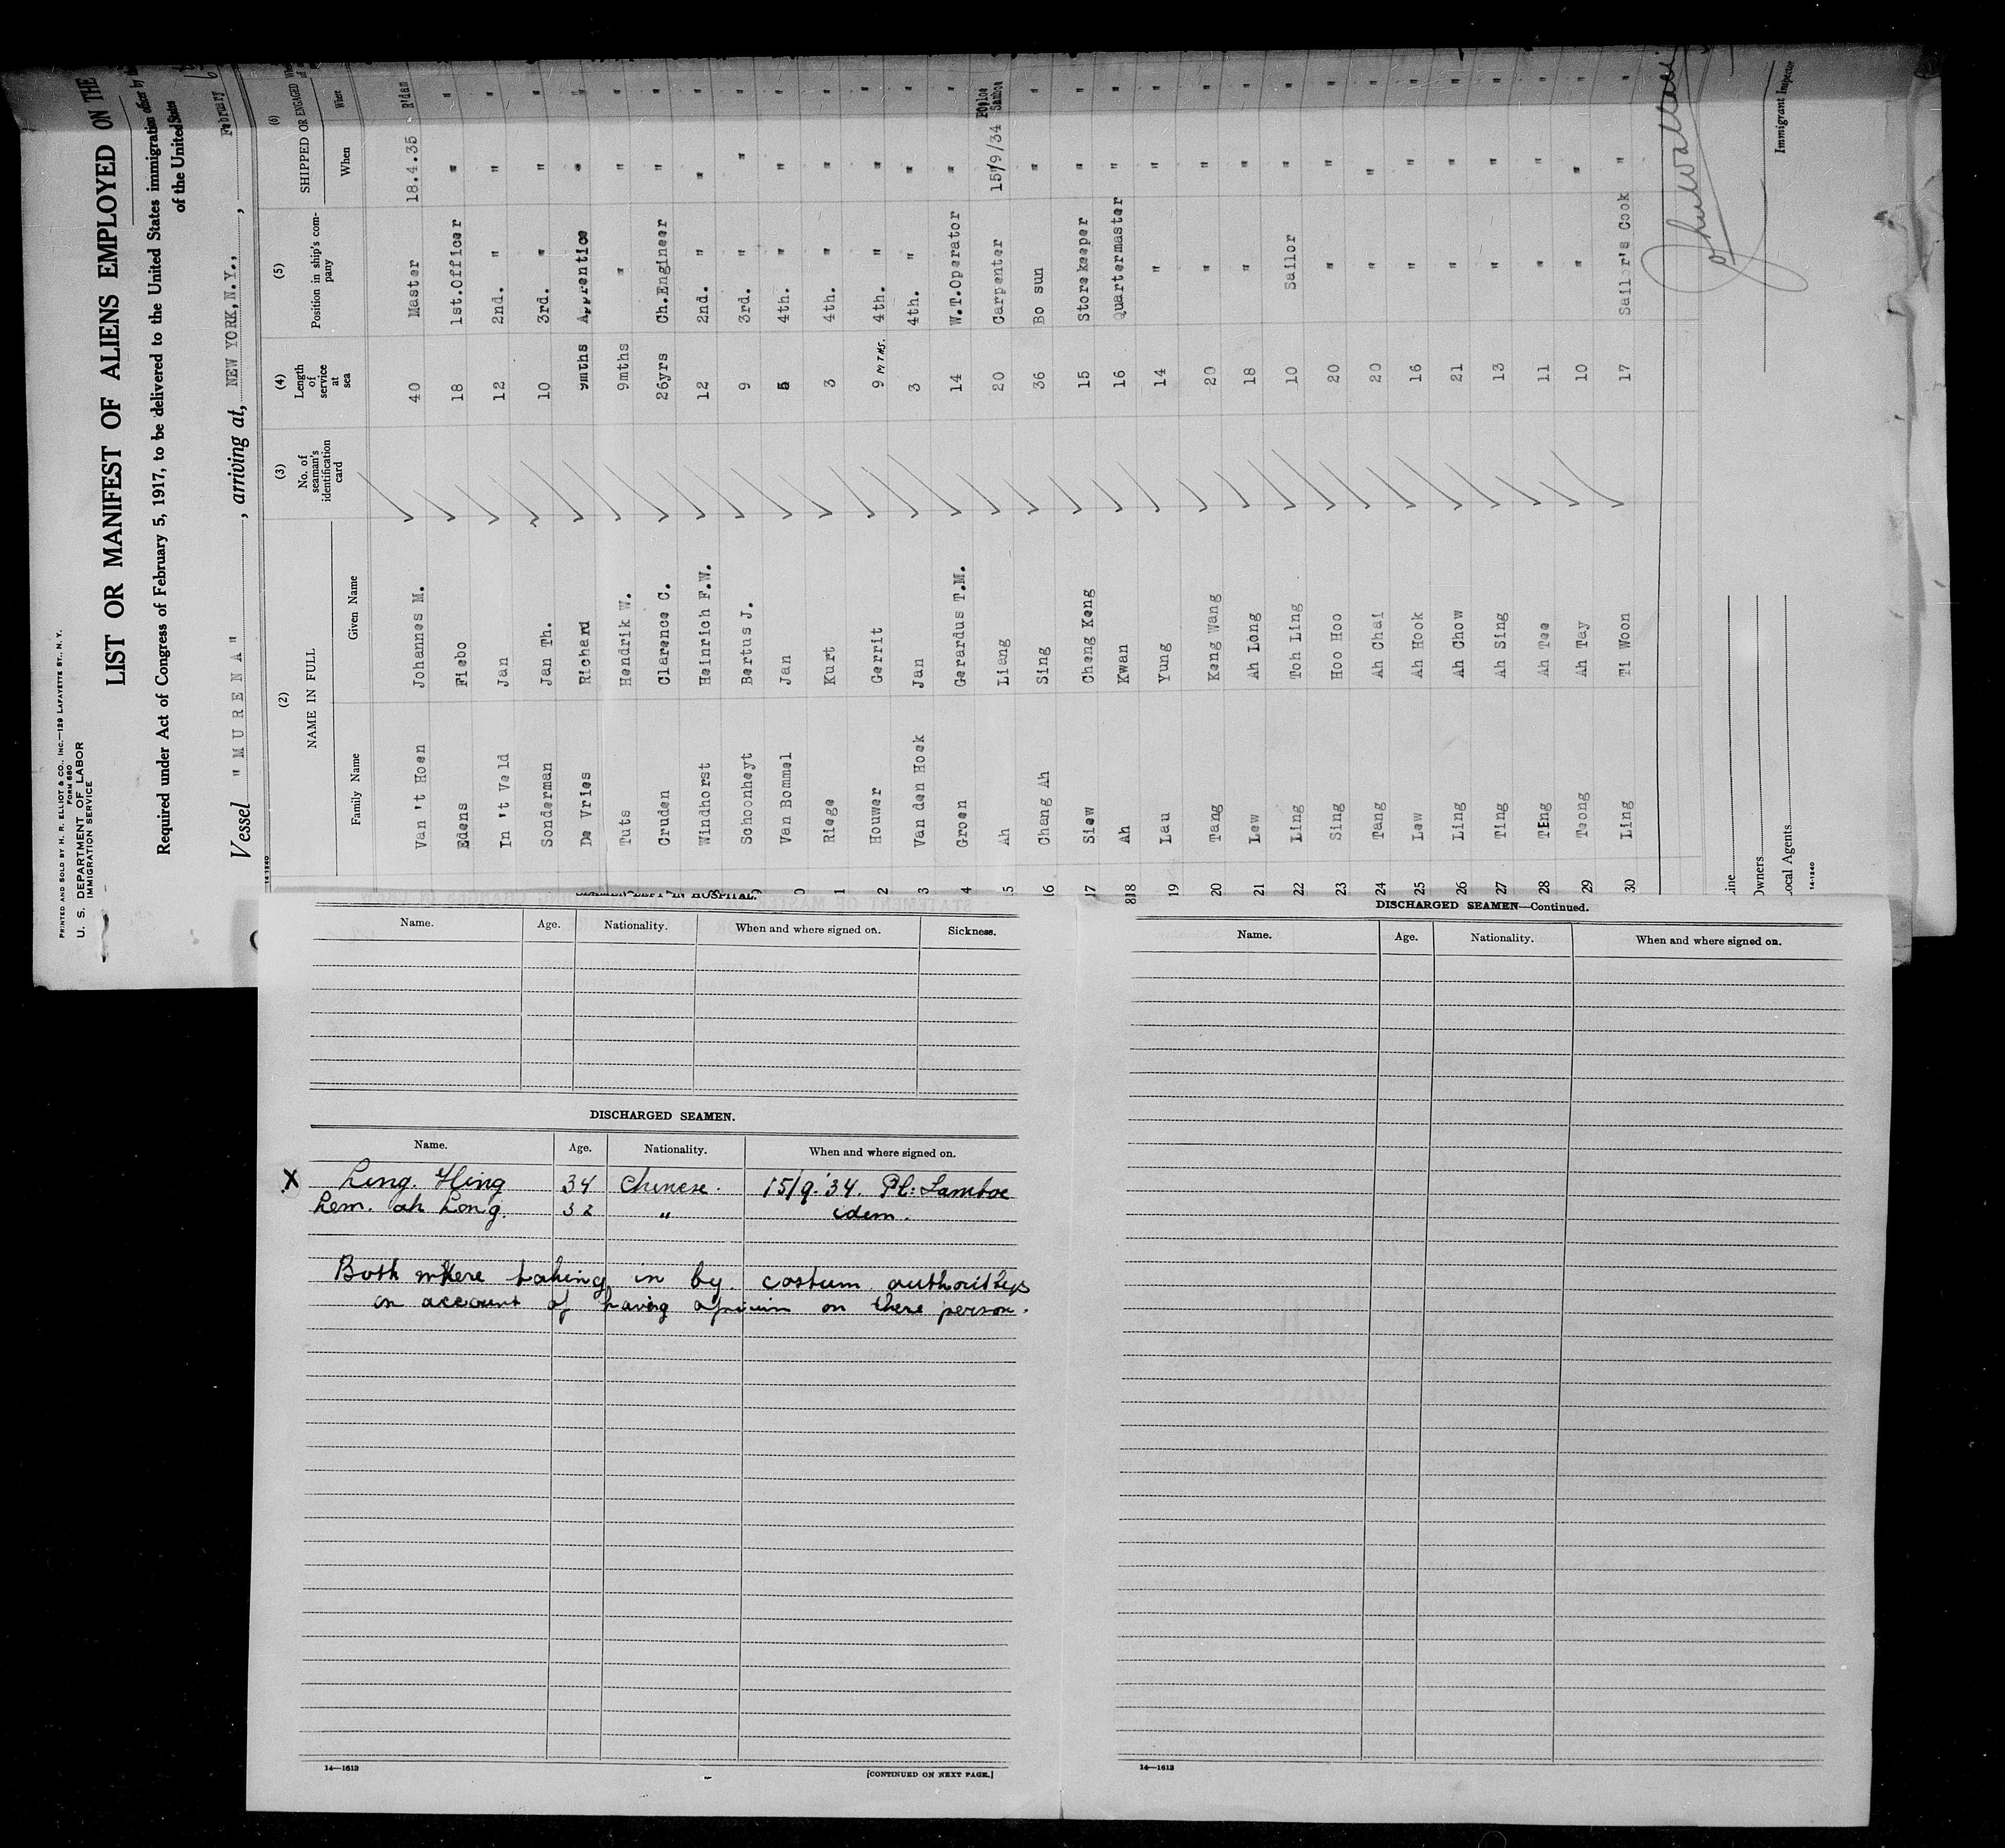 PRINTED AND SOLD BY H. R. ELLIOT & CO., INC.—129 LAFAYETTE ST., N. Y.
FORM 680
U. S. DEPARTMENT OF LABOR
IMMIGRATION SERVICE
LIST OR MANIFEST OF ALIENS EMPLOYED ON THE
Required under Act of Congress of February 5, 1917, to be delivered to the United States immigration officer by the
of the United States
Vessel "MURENA", arriving at, NEW YORK, N.Y., February
14-1240
(2) (3) (4) (5) (6)
NAME IN FULL No. of seaman's identification card Length of service at sea Position in ship's company SHIPPED OR ENGAGED
Family Name Given Name When Where
Van 't Hoen Johannes M. 40 Master 18.4.35 R'dam
Edens Fiebo 18 1st.Officer " "
In 't Veld Jan 12 2nd. " " "
Sonderman Jan Th. 10 3rd. " " "
De Vries Richard 9mths Apprentice " "
Tuts Hendrik W. 9mths " " "
Cruden Clarence C. 26yrs Ch.Engineer " "
Windhorst Heinrich F.W. 12 2nd. " " "
9 Schoonheyt Bertus J. 9 3rd. " " "
0 Van Bommel Jan 5 4th. " " "
1 Riege Kurt 3 4th. " " "
2 Houwer Gerrit 9 MTHS. 4th. " " "
3 Van den Hoek Jan 3 4th. " " "
4 Groen Gerardus T.M. 14 W.T.Operator " "
15 Ah Liang 20 Carpenter 15/9/34 Poeloe Samboe
16 Chang Ah Sing 36 Bo sun " "
17 Siew Cheng Keng 15 Storekeeper " "
18 Ah Kwan 16 Quartermaster " "
19 Lau Yung 14 " " "
20 Tang Keng Wang 20 " " "
21 Lew Ah Long 18 " " "
22 Ling Toh Ling 10 Sailor " "
23 Sing Hoo Hoo 20 " " "
24 Tang Ah Chai 20 " " "
25 Lew Ah Hook 16 " " "
26 Ling Ah Chow 21 " " "
27 Ting Ah Sing 13 " " "
28 TEng Ah Tee 11 " " "
29 Teong Ah Tay 10 " " "
30 Ling Ti Woon 17 Sailor's Cook " "
Immigrant Inspector
Line
Owners
Local Agents
14-1240
SEAMEN LEFT IN HOSPITAL.
Name. Age. Nationality. When and where signed on. Sickness.
DISCHARGED SEAMEN.
Name. Age. Nationality. When and where signed on.
X Ling. Hing 34 Chinese. 15/9.'34. Pl: Samboe
Lem. ah Long. 32 " idem.
Both where taking in by. costum authoritys
on account of having opium on there person.
14—1613
[CONTINUED ON NEXT PAGE.]
DISCHARGED SEAMEN—Continued.
Name. Age. Nationality. When and where signed on.
14—1613